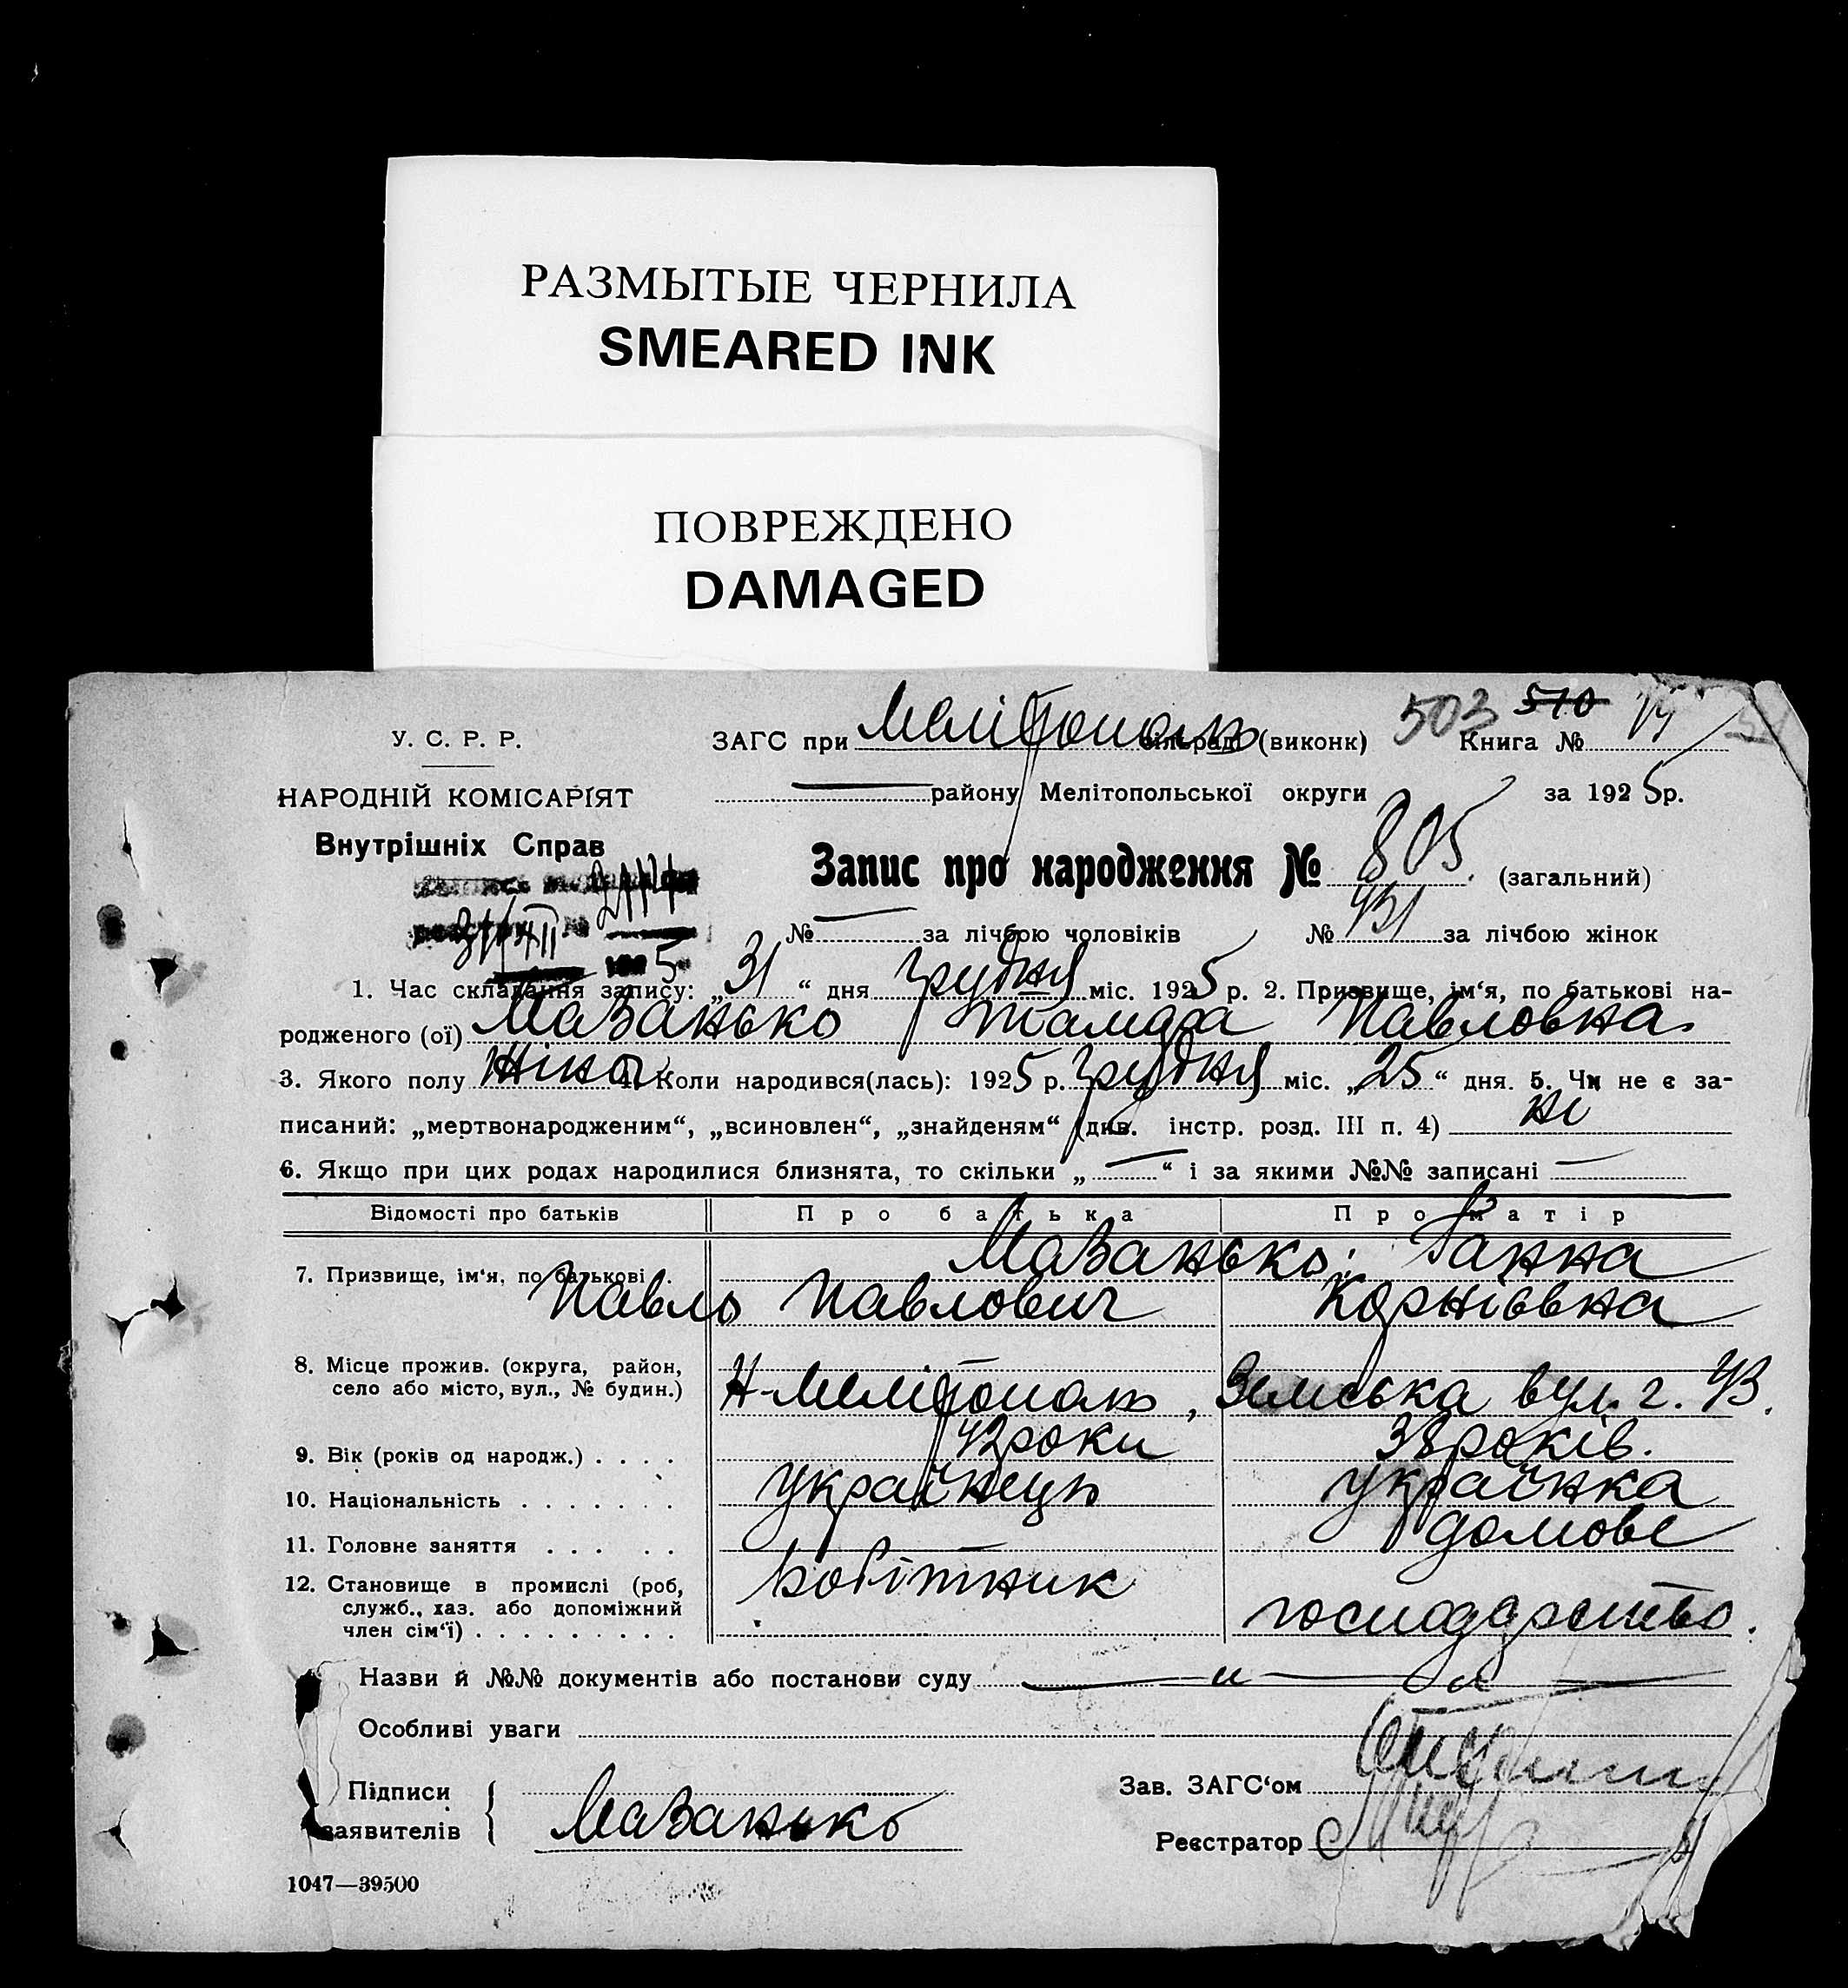 РАЗМЫТЫЕ ЧЕРНИЛА
SMEARED INK
ПОВРЕЖДЕНО
DAMAGED
503 510
У. С. Р. Р. ЗАГС при Мелітополь сільраді (виконк) Книга № 14
НАРОДНІЙ КОМІСАРІЯТ — району Мелітопольської округи за 1925 р.
Внутрішніх Справ
Запис про народження № 805. (загальний)
31/XII
5
№ — за лічбою чоловіків № 431 за лічбою жінок
1. Час складання запису: „31“ дня грудня міс. 1925 р. 2. Призвище, ім‘я, по батькові на-
родженого (ої) Мазанько Тамара Павловна
3. Якого полу жіноч. 4. Коли народився(лась): 1925 р. грудня міс. „25“ дня. 5. Чи не є за-
писаний: „мертвонародженим“, „всиновлен“, „знайденям“ (див. інстр. розд. III п. 4) ні
6. Якщо при цих родах народилися близнята, то скільки „—“ і за якими №№ записані —
Відомості про батьків Про батька Про матір
7. Призвище, ім‘я, по батькові . . Мазанько: Ганна
Павло Павлович Корніївна
8. Місце прожив. (округа, район,
село або місто, вул., № будин.) Н-Мелітополь, Земська вул. г. 43.
9. Вік (років од народж.) . . . . 42 роки 38 років.
10. Національність . . . . . . . українець українка
11. Головне заняття . . . . . домове
12. Становище в промислі (роб, робітник
служб., хаз. або допоміжний господарство.
член сім‘ї) . . . . . . . . .
Назви й №№ документів або постанови суду — „ — „ —
Особливі уваги
Підписи
заявителів Мазанько
Зав. ЗАГС‘ом
Реєстратор
1047—39500